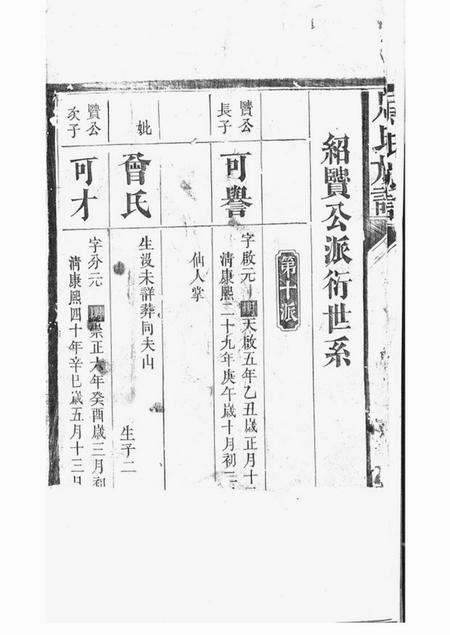 周氏族譜
紹贒公派衍世系
第十派
贒公
長子
可譽
字啟元 明天啟五年乙丑歲正月十
清康熙二十九年庚午歲十月初二
仙人掌
妣
曾氏
生沒未詳葬同夫山
生子二
贒公
次子
可才
字介元 明崇正六年癸酉歲三月初
清康熙四十年辛巳歲五月十三日